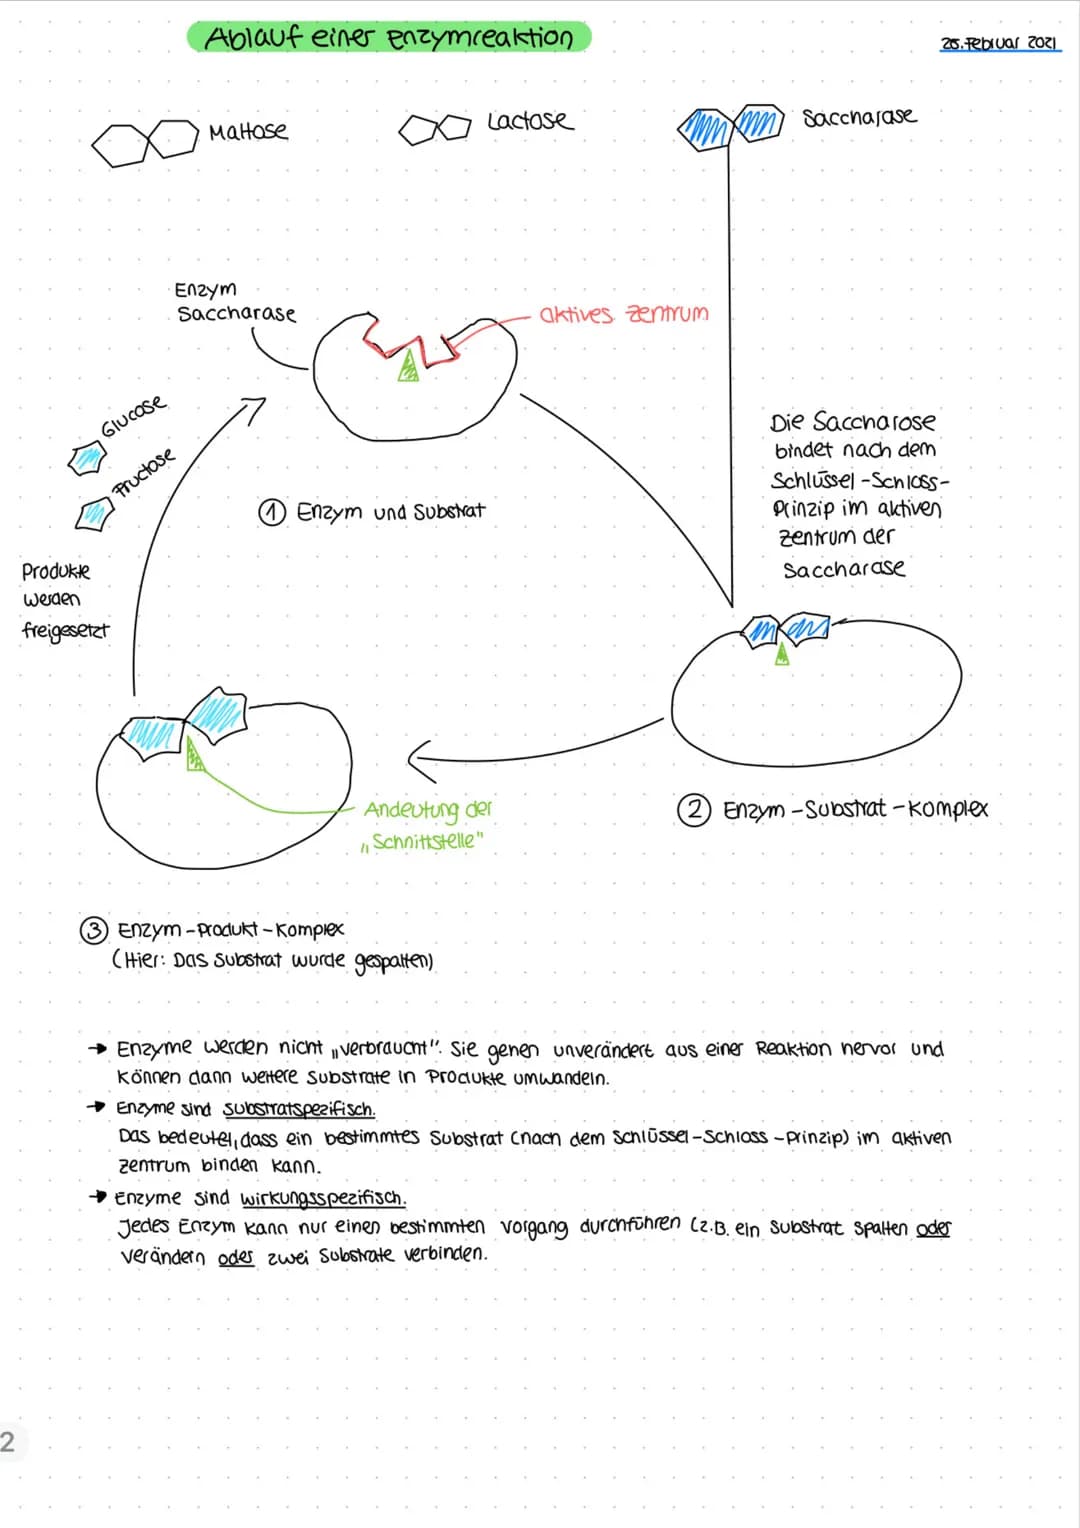 Ablauf einer Enzymreaktion
25. Februar 2021
Maltose
Lactose
Saccharase
Enzym
Saccharase
aktives Zentrum
Glucose
Fructose
Die Saccharose
bindet nach dem
Schlüssel-Schloss-
Prinzip im aktiven
Zentrum der
Saccharase
① Enzym und Substrat
Produkte
werden
freigesetzt
Andeutung der
„Schnittstelle"
② Enzym-Substrat-Komplex
③ Enzym-Produkt-Komplex
(Hier: Das Substrat wurde gespalten)
→ Enzyme werden nicht „verbraucht". Sie gehen unverändert aus einer Reaktion hervor und
können dann weitere Substrate in Produkte umwandeln.
→ Enzyme sind substratspezifisch.
Das bedeutet, dass ein bestimmtes Substrat (nach dem Schlüssel-Schloss-Prinzip) im aktiven
Zentrum binden kann.
→ Enzyme sind wirkungsspezifisch.
Jedes Enzym kann nur einen bestimmten Vorgang durchführen (z.B. ein Substrat spalten oder
verändern oder zwei Substrate verbinden.
2